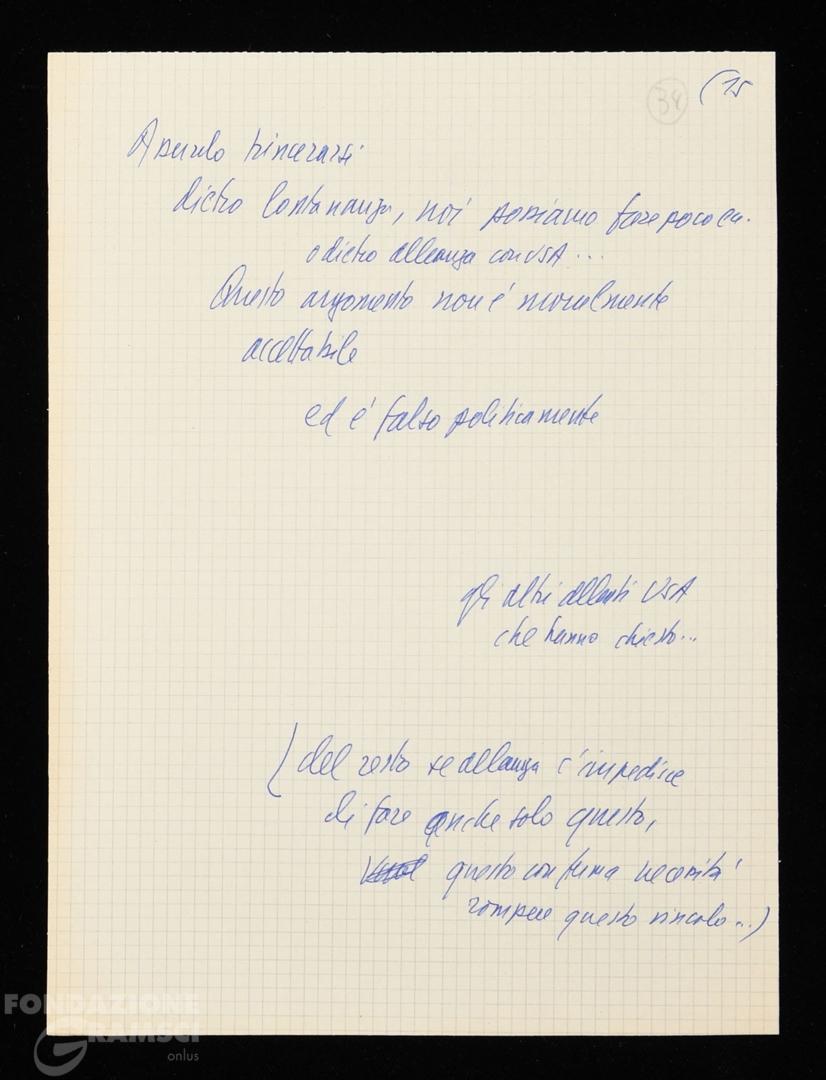 (15
38
Assurdo trincerarsi
dietro lontananza, noi possiamo fare poco ecc.
o dietro alleanza con USA...
Questo argomento non è moralmente
accettabile
ed è falso politicamente
gli altri alleati USA
che hanno chiesto...
(del resto se alleanza c'impedisce
di fare anche solo questo,
questo conferma necessità
rompere questo vincolo...)
FONDAZIONE
GRAMSCI
onlus